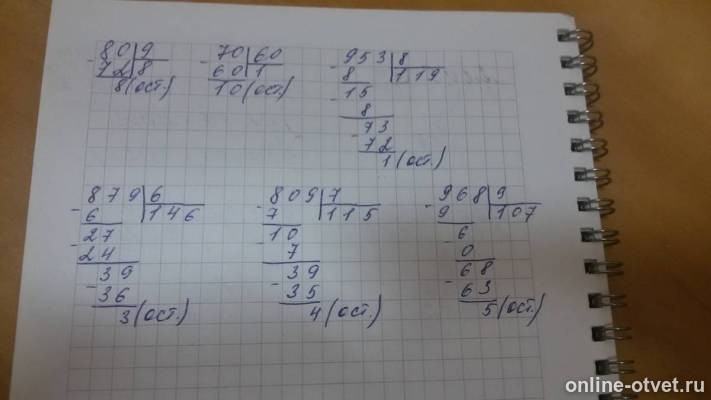 - 80 | 9
72 | 8
8 (ост.)
- 70 | 60
60 | 1
10 (ост.)
- 953 | 8
8 | 119
- 15
8
- 73
72
1 (ост.)
- 879 | 6
6 | 146
- 27
24
- 39
36
3 (ост.)
- 809 | 7
7 | 115
- 10
7
- 39
35
4 (ост.)
- 968 | 9
9 | 107
- 6
0
- 68
63
5 (ост.)
online-otvet.ru